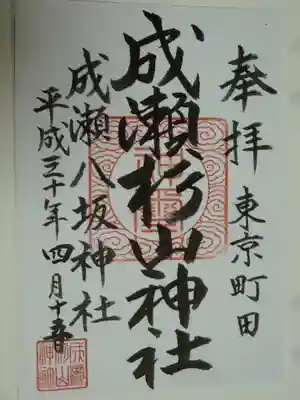 奉拝
東京町田
成瀬杉山神社
成瀬八坂神社
平成三十年四月十五日